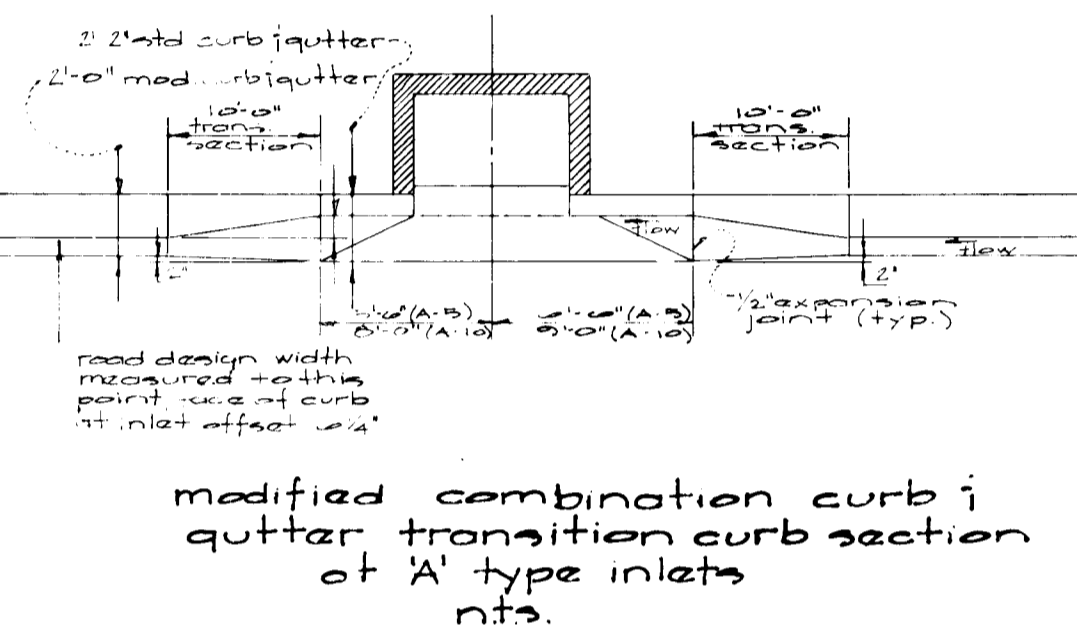 2' 2" std curb & gutter
2'-0" mod. curb & gutter
10'-0"
trans.
section
10'-0"
trans.
section
flow
flow
2"
2"
1/2" expansion
joint (typ.)
(A-5)
8'-0" (A-10)
6'-6" (A-5)
9'-0" (A-10)
road design width
measured to this
point face of curb
at inlet offset 6 1/4"
modified combination curb &
gutter transition curb section
at 'A' type inlets
n.t.s.